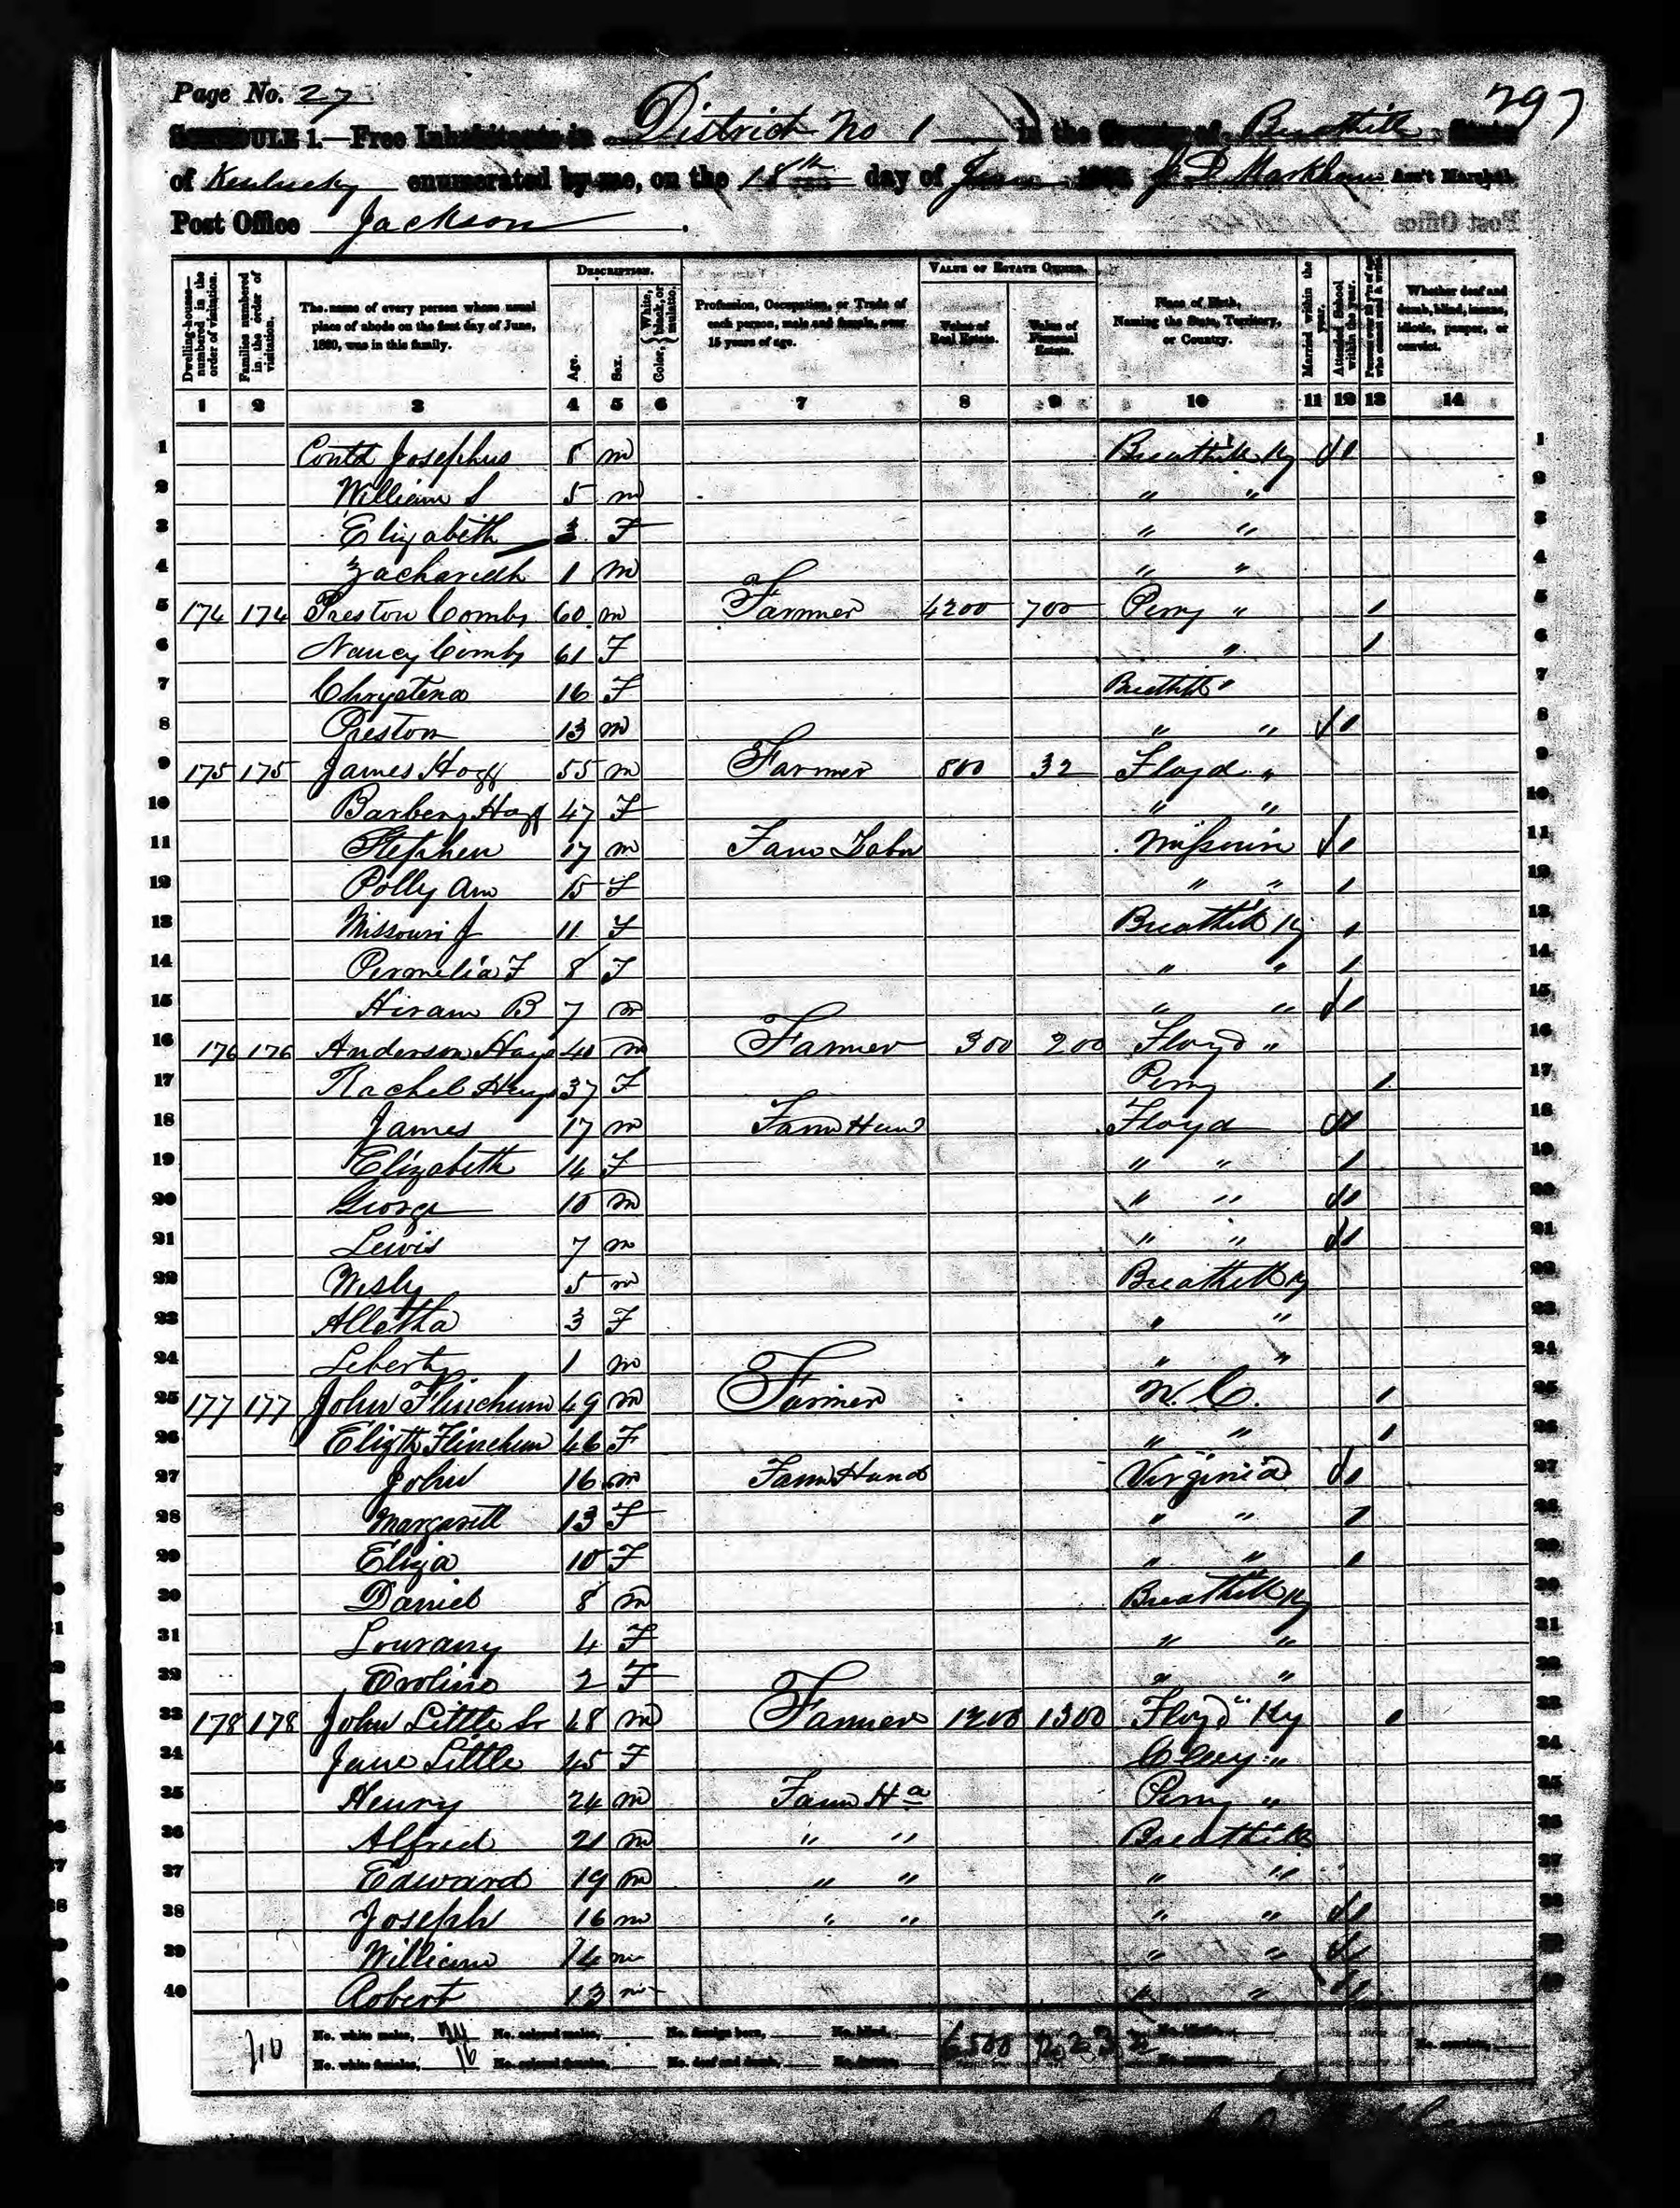 Page No. 27
297
SCHEDULE 1.—Free Inhabitants in District No 1 in the County of Breathitt State
of Kentucky enumerated by me, on the 18th day of June 1860. J D Markham Ass't Marshal
Post Office Jackson
Dwelling-houses—numbered in the order of visitation.
Families numbered in the order of visitation.
The name of every person whose usual place of abode on the first day of June, 1860, was in this family.
Description.
Age.
Sex.
Color, White, black, or mulatto.
Profession, Occupation, or Trade of each person, male and female, over 15 years of age.
Value of Estate Owned.
Value of Real Estate.
Value of Personal Estate.
Place of Birth, Naming the State, Territory, or Country.
Married within the year.
Attended School within the year.
Persons over 20 y'rs of age who cannot read & write.
Whether deaf and dumb, blind, insane, idiotic, pauper, or convict.
1 2 3 4 5 6 7 8 9 10 11 12 13 14
1 Contd Josephus 8 m Breathitt Ky 1
2 William S 5 m " "
3 Elizabeth 3 F " "
4 Zachariah 1 m " "
5 174 174 Preston Combs 60 m Farmer 4200 700 Perry " 1
6 Nancy Combs 61 F " 1
7 Chrystena 16 F Breathitt "
8 Preston 13 m " " 1
9 175 175 James Hoff 55 m Farmer 800 32 Floyd "
10 Barbery Hoff 47 F " "
11 Stephen 17 m Farm Labr Missouri 1
12 Polly Ann 15 F " " 1
13 Missouri J 11 F Breathitt Ky 1
14 Permelia F 8 F " " 1
15 Hiram B 7 m " " 1
16 176 176 Anderson Hays 40 m Farmer 300 200 Floyd "
17 Rachel Hays 37 F Perry 1
18 James 17 m Farm Hand Floyd 1
19 Elizabeth 14 F " " 1
20 George 10 m " " 1
21 Lewis 7 m " " 1
22 Wesly 5 m Breathitt Ky
23 Alletha 3 F " "
24 Liberty 1 m " "
25 177 177 John Flinchum 49 m Farmer N. C. 1
26 Elizth Flinchum 46 F " " 1
27 John 16 m Farm Hand Virginia 1
28 Margarett 13 F " " 1
29 Eliza 10 F " " 1
30 Daniel 8 m Breathitt Ky
31 Lourany 4 F " "
32 Evoline 2 F " "
33 178 178 John Little Sr 48 m Farmer 1200 1300 Floyd " Ky 1
34 Jane Little 45 F Clay "
35 Henry 24 m Farm Ha Perry "
36 Alfred 21 m " " Breathitt
37 Edward 19 m " " " "
38 Joseph 16 m " " " " 1
39 William 14 m " " 1
40 Robert 13 m " " 1
No. white males, 24 No. colored males, No. foreign born, No. blind, 6500 2232
No. white females, 16 No. colored females, No. deaf and dumb, No. insane, No. convicts,